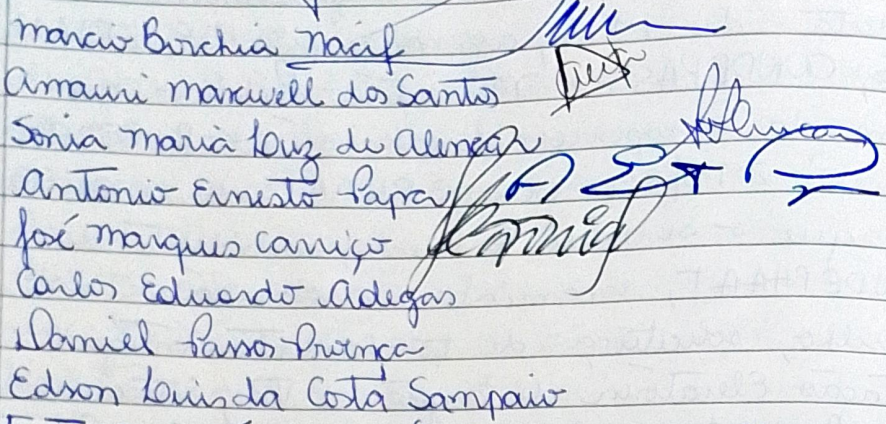 Marcio Borchia Nacif
Amauri Marwell dos Santos
Sonia Maria Luz de Alencar
Antonio Ernesto Papa
José Marques Carriço
Carlos Eduardo Adegas
Daniel Passos Proença
Edson Luis da Costa Sampaio